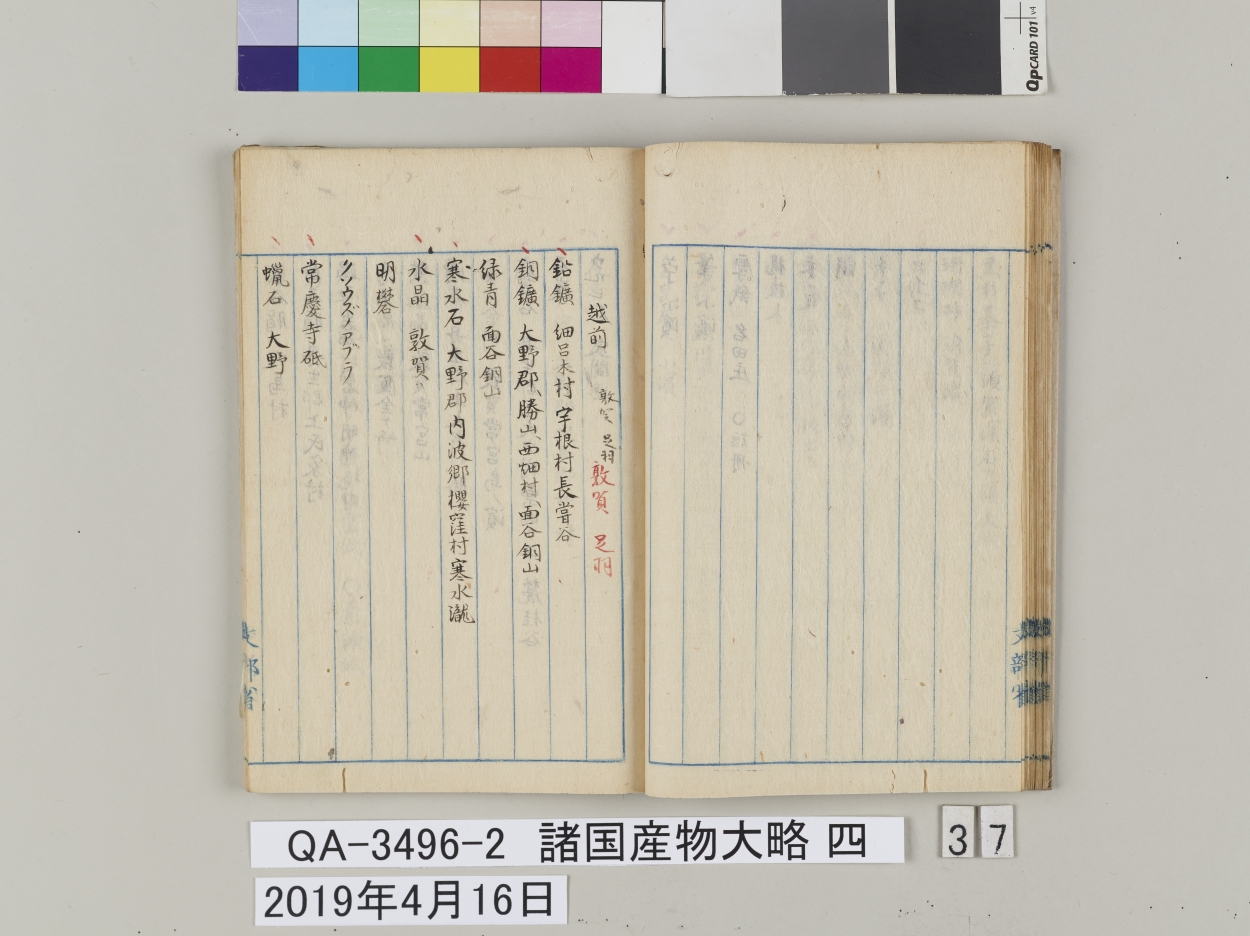 QPCARD 101 v4
越前 敦賀 足羽 敦賀 足羽
鉛鑛 細呂木村 宇根村 長嘗谷
銅鑛 大野郡、勝山、西畑村、面谷銅山
绿青 面谷銅山
寒水石 大野郡内波郷櫻窪村寒水瀧
水晶 敦賀
明礬
クソウズノアブラ
常慶寺砥
蠟石 大野
文部省
文部省
QA-3496-2 諸国産物大略 四
37
2019年4月16日